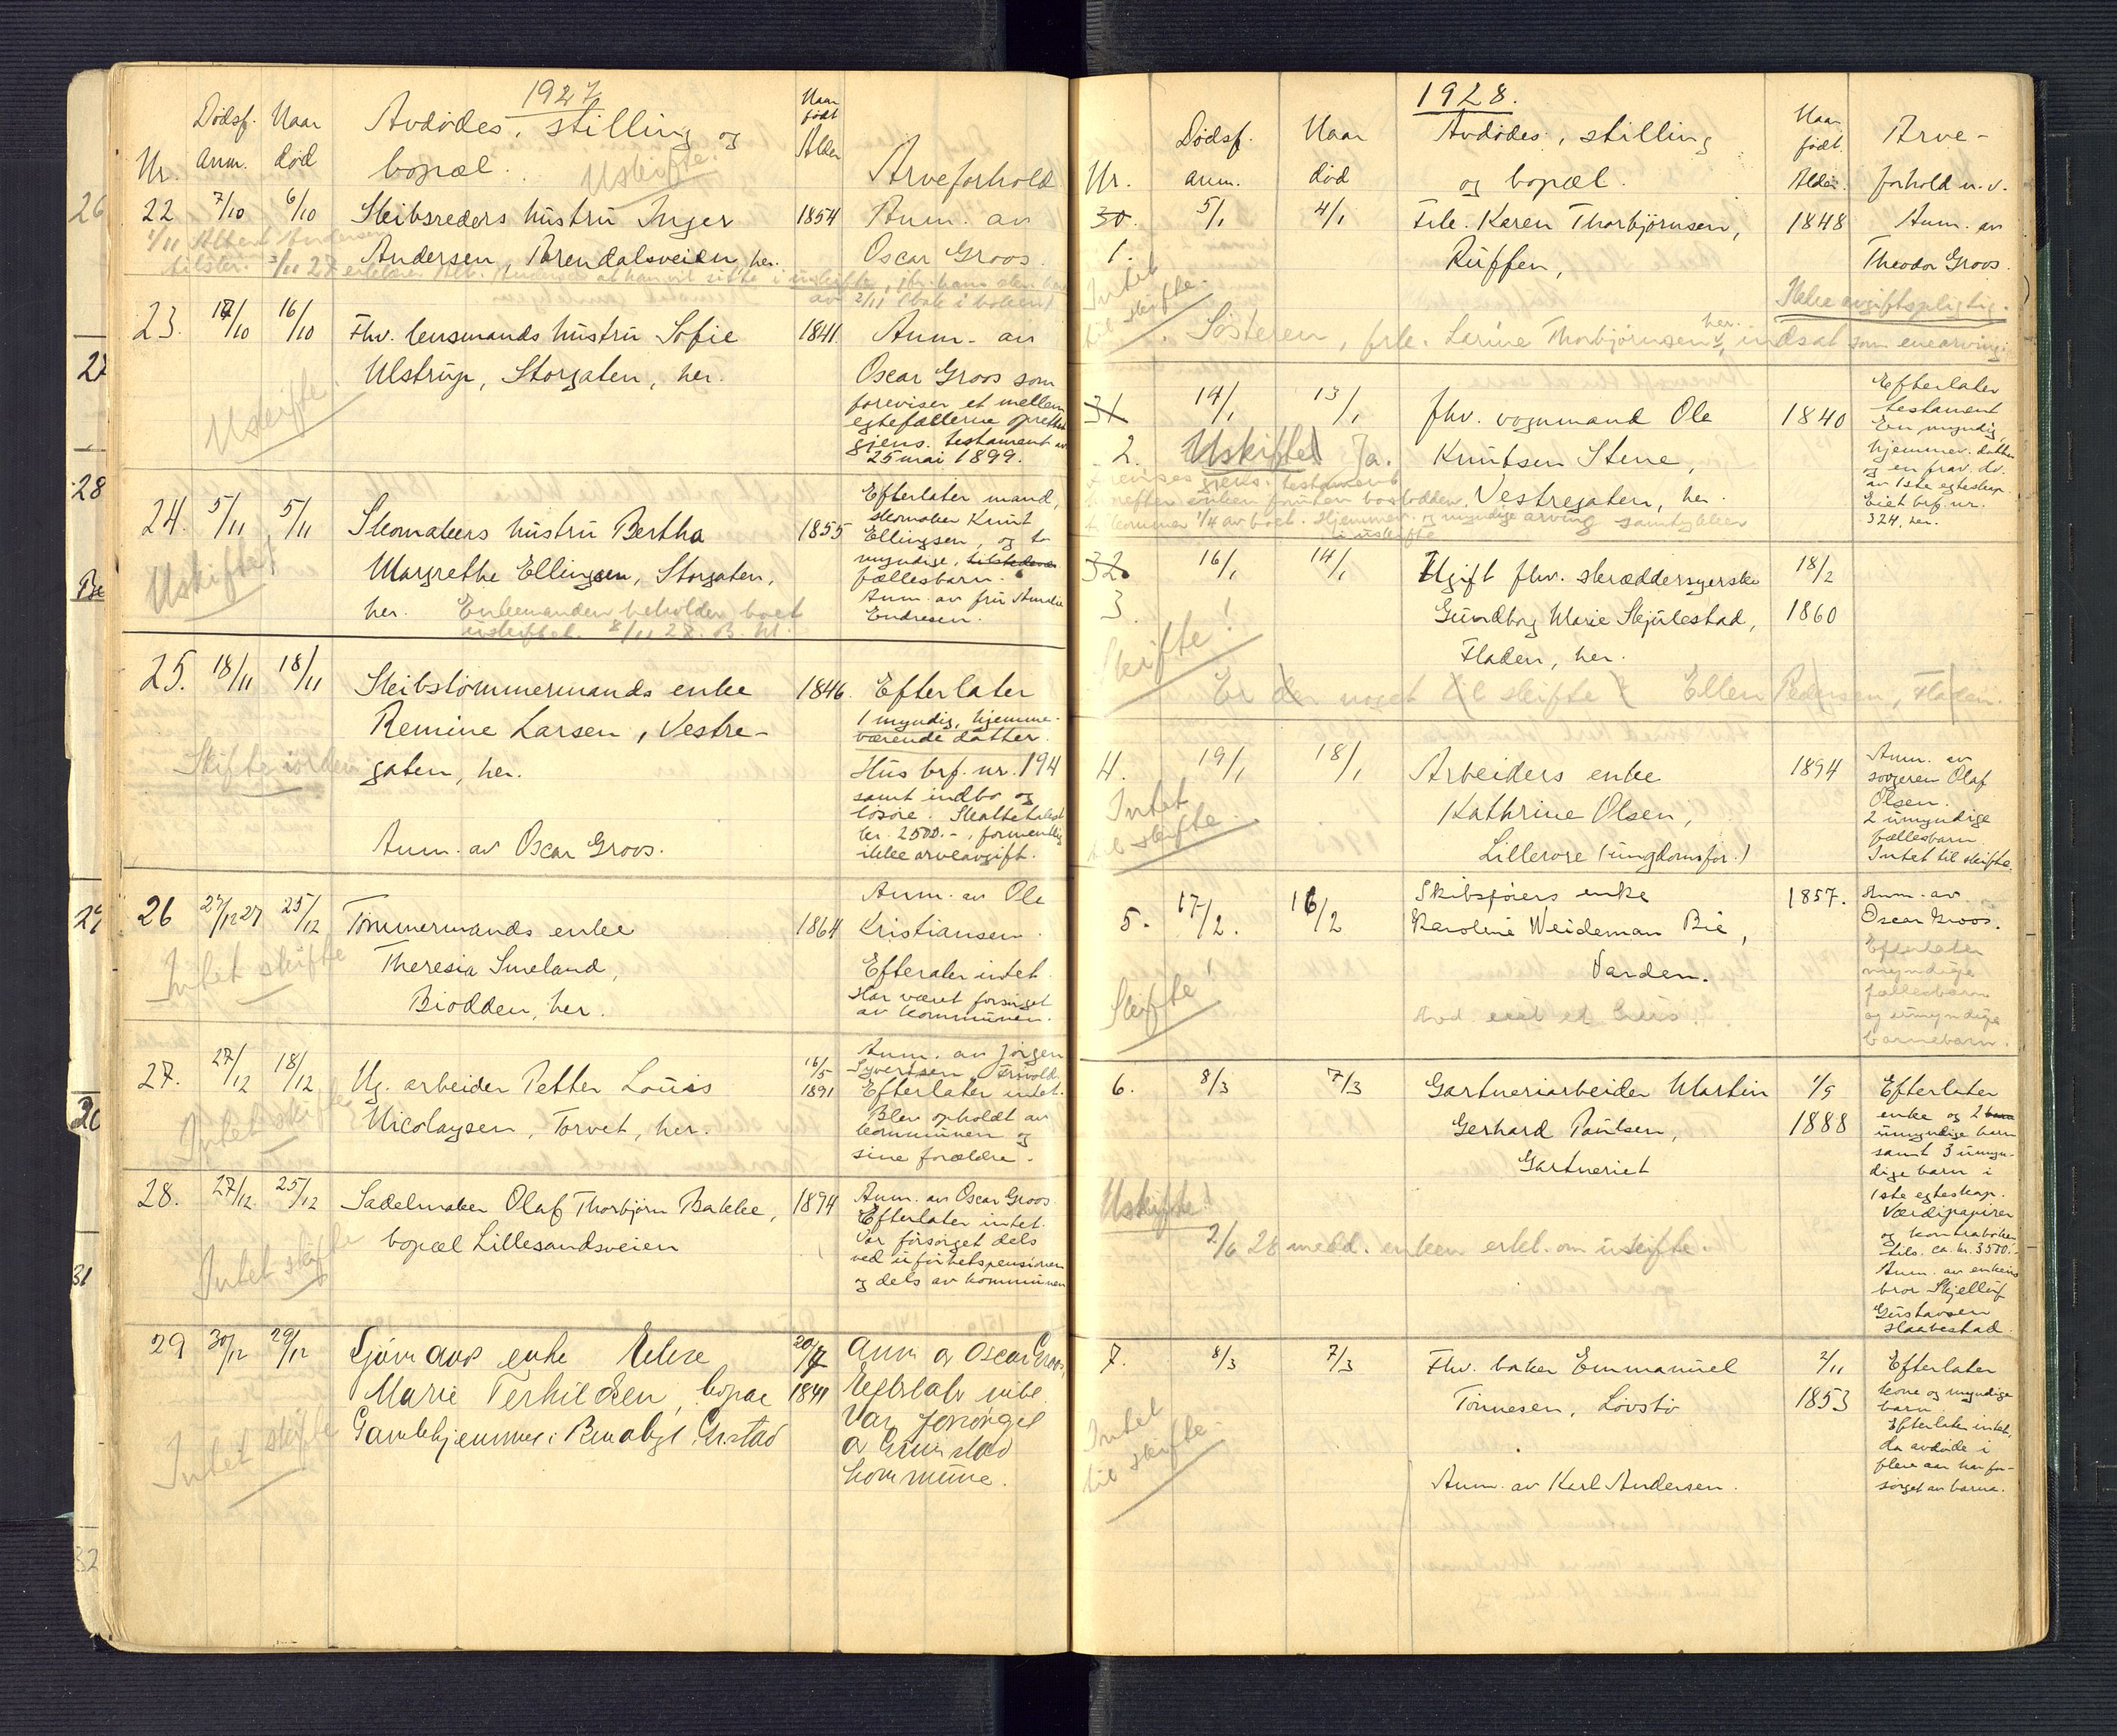 1927
Dødsf. Naar Avdødes, stilling og Naar født
Nr. anm. død bopæl. Alder Arveforhold
Uskifte.
22 7/10 6/10 Skibsreders hustru Inger 1854 Anm. av
Andersen, Arendalsveien, her. Oscar Groos.
1/11 Albert Andersen
23. 17/10 16/10 Fhv. lensmands hustru Sofie 1841 Anm. av
Ulstrup, Storgaten, her. Oscar Groos som
foreviser et mellem
egtefællerne oprettet
gjens. testament av
25 mai 1899.
Uskifte!
24. 5/11 5/11 Skomakers hustru Bertha 1855
Margrethe Ellingsen, Storgaten,
her. Enkemanden beholder boet
uskiftet. 8/11 27. B. M.
Efterlater mand,
skomaker Knut
Ellingsen, og to
myndige, tilstedevær
fællesbarn.
Anm. av fru Amalie
Endresen.
Uskiftet
25. 18/11 18/11 Skibstømmermands enke 1846. Efterlater
Remine Larsen, Vestre-
gaten, her.
Anm. av Oscar Groos.
1 myndig, hjemme-
værende datter.
Hus brf. nr. 194
samt indbo og
løsøre. Skattetakst
kr. 2500.-, formentlig
ikke arveavgift.
Skifte i orden
26 27/12 27 25/12 Tømmermands enke 1864
Theresia Smeland,
Biodden, her.
Anm. av Ole
Kristiansen.
Efterlater intet.
Har været forsørget
av kommunen.
Intet skifte
27. 27/12 18/12 Ug. arbeider Petter Louis 16/5 1891
Nicolaysen, Torvet, her.
Anm. av Jørgen
Syvertsen, Frivold
Efterlater intet.
Blev opholdt av
kommunen og
sine forældre.
Intet skifte
28. 27/12. 25/12 Sadelmaker Olaf Thorbjørn Bakke, 1894
bopæl Lillesandsveien
Anm. av Oscar Groos
Efterlater intet.
Var forsørget dels
ved uførhetspensionen
og dels av kommunen
Intet skifte
29 30/12 29/12 Sjømands enke Elise 20/7 1841
Marie Terkildsen, bopæl
Gamlehjemmet i Binabgt. Gr.stad
Anm av Oscar Groos,
Efterlater intet
Var forsørget
av Grimstad
kommune.
Intet skifte
1928.
Dødsf. Naar Avdødes, stilling Naar født. Arve-
Nr. anm. død og bopæl. Alder. forhold m.v.
30. 5/1 4/1 Frk. Karen Thorbjørnsen, 1848 Anm. av
1. Ruffen, Theodor Groos.
Intet
til skifte.
Ikke avgiftspligtig.
Søsteren, frk. Larine Thorbjørnsen, her. indsat som enearving
31 14/1 13/1 fhv. vognmand Ole 1840
2. Uskifte! Ja. Knutsen Stene,
Vestregaten, her.
Efterlater
testament
En myndig
hjemmev. datter
og en frav. do.
av 1ste egteskap.
Eiet brf. nr.
324, her.
32. 16/1 14/1 Ugift fhv. skræddersyerske 18/2
3. Gundborg Marie Skjulestad, 1860
Fladen, her.
Skifte!
Er der noget til skifte? Ellen Pedersen, Fladen.
4. 19/1 18/1 Arbeiders enke 1894
Kathrine Olsen,
Lillerore (ungdomsfor.)
Anm. av
svogeren Olaf
Olsen.
2 umyndige
fællesbarn.
Intet til skifte.
Intet
til skifte.
5. 17/2. 16/2 Skibsførers enke 1857.
Karoline Weideman Bie,
Varden.
Avd. eiet et hus.
Anm. av
Oscar Groos.
Efterlater
myndige
fællesbarn
og umyndige
barnebarn.
Skifte!
6. 8/3 7/3 Gartneriarbeider Martin 1/9
Gerhard Paulsen, 1888
Gartneriet
Efterlater
enke og 2 barn
umyndige barn
samt 3 umyn-
dige barn i
1ste egteskap.
Værdipapirer
og kontrabøker
tils. ca. kr. 3500.-
Anm. av enkens
bror Skjelluf
Gustavsen
Haabestad.
Uskifte!
2/6 28 medd. enken erkl. om uskifte.
7. 8/3 7/3 Fhv. baker Emmanuel 2/11
Tønnesen, Løvstø 1853
Anm. av Karl Andersen.
Efterlater
kone og myndige
barn.
Efterlater intet,
da avdøde i
flere aar har for-
sørget av barna.
Intet
til skifte.